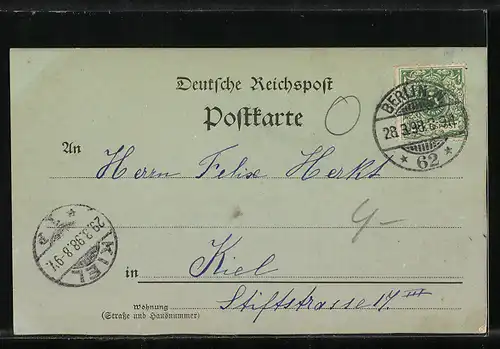 Deutsche Reichspost
Postkarte
BERLIN
28.3.98.
* 62 *
An
Herrn Felix Herkt
4-
KIEL
29.3.98.8-9V.
in
Kiel
Wohnung
(Straße und Hausnummer)
Stiftstrasse 17 III